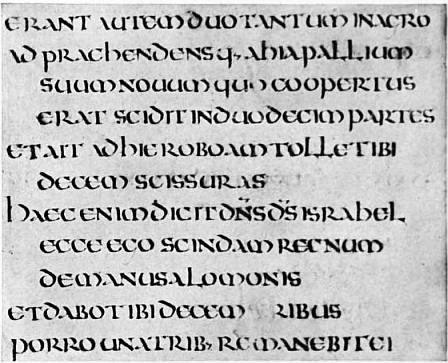 ERANT AUTEM DUO TANTUM IN AGRO
ADPRAEHENDENSQ, AHIA PALLIUM
SUUM NOUUM QUO COOPERTUS
ERAT SCIDIT IN DUODECIM PARTES
ET AIT AD HIEROBOAM TOLLE TIBI
DECEM SCISSURAS
HAEC ENIM DICIT DN̄S DS̄ ISRAHEL
ECCE EGO SCINDAM REGNUM
DE MANU SALOMONIS
ET DABO TIBI DECEM RIBUS
PORRO UNA TRIB, REMANEBIT EI